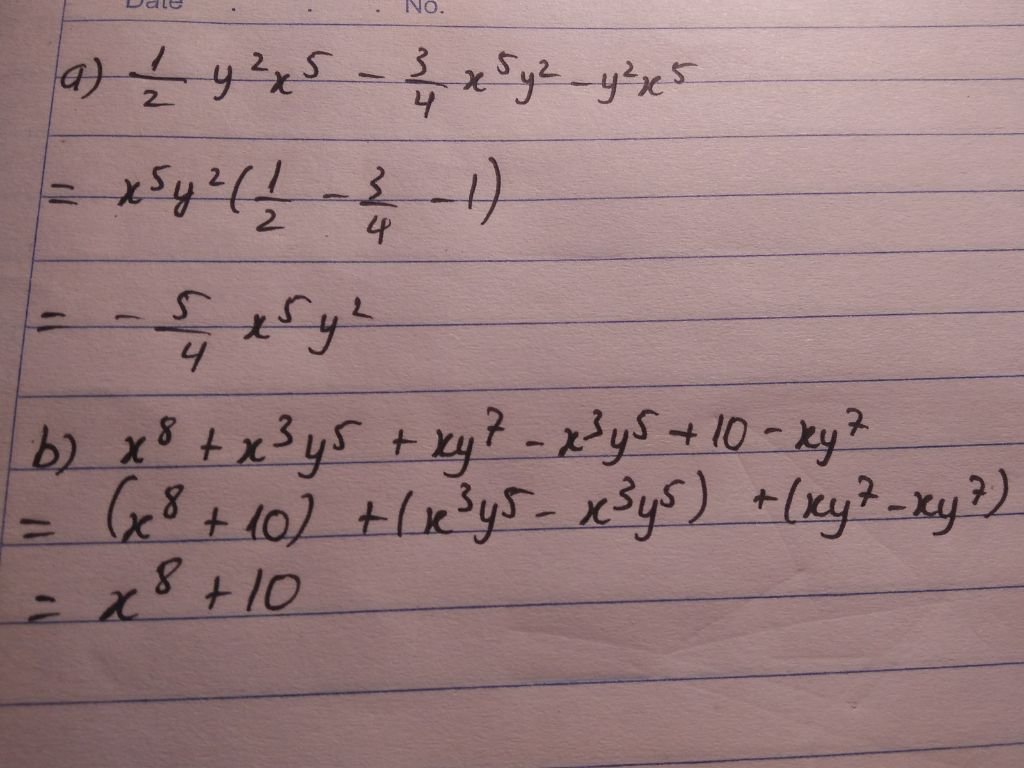 Date . . . No.
a) 1/2 y²x⁵ - 3/4 x⁵y² - y²x⁵
= x⁵y² (1/2 - 3/4 - 1)
= - 5/4 x⁵y²
b) x⁸ + x³y⁵ + xy⁷ - x³y⁵ + 10 - xy⁷
= (x⁸ + 10) + (x³y⁵ - x³y⁵) + (xy⁷ - xy⁷)
= x⁸ + 10